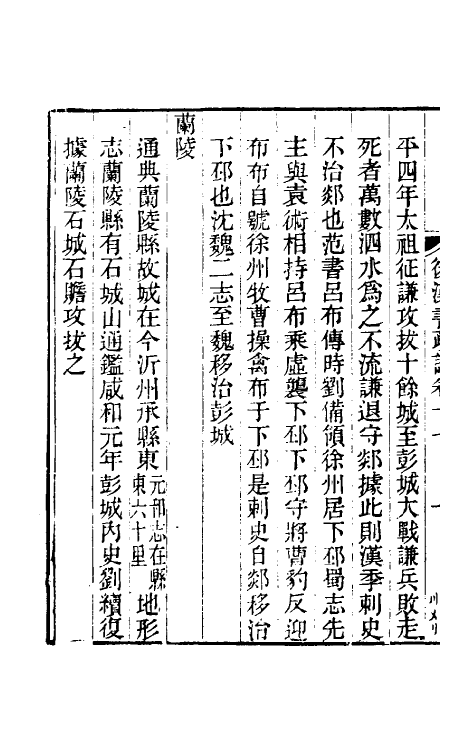 平四年太祖征謙攻拔十餘城至彭城大戰謙兵敗走
死者萬數泗水爲之不流謙退守郯據此則漢季刺史
不治郯也范書呂布傳時劉備領徐州居下邳蜀志先
主與袁術相持呂布乘虛襲下邳下邳守將曹豹反迎
布布自號徐州牧曹操禽布于下邳是刺史自郯移治
下邳也沈魏二志至魏移治彭城
蘭陵
通典蘭陵縣故城在今沂州承縣東元郡志在縣東六十里地形
志蘭陵縣有石城山通鑑咸和元年彭城內史劉續復
據蘭陵石城石贍攻拔之